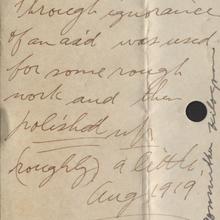 through ignorance
of an aid was used
for some rough
work and then
polished up
(roughly) a little
Aug 1919